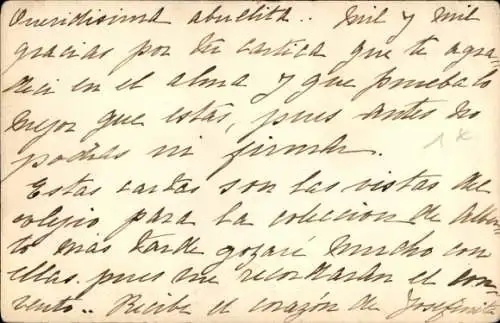 Queridisima abuelita.. Mil y mil
gracias por tu cartica que te agra-
deci en el alma y que prueba lo
mejor que estás, pues antes no
podías ni firmar.
Estas cartas son las vistas del
colejio para la coleccion de
lo más tarde gozaré mucho con
ellas. pues me recordarán el con-
vento.. Recibe el corazón de Josefinita